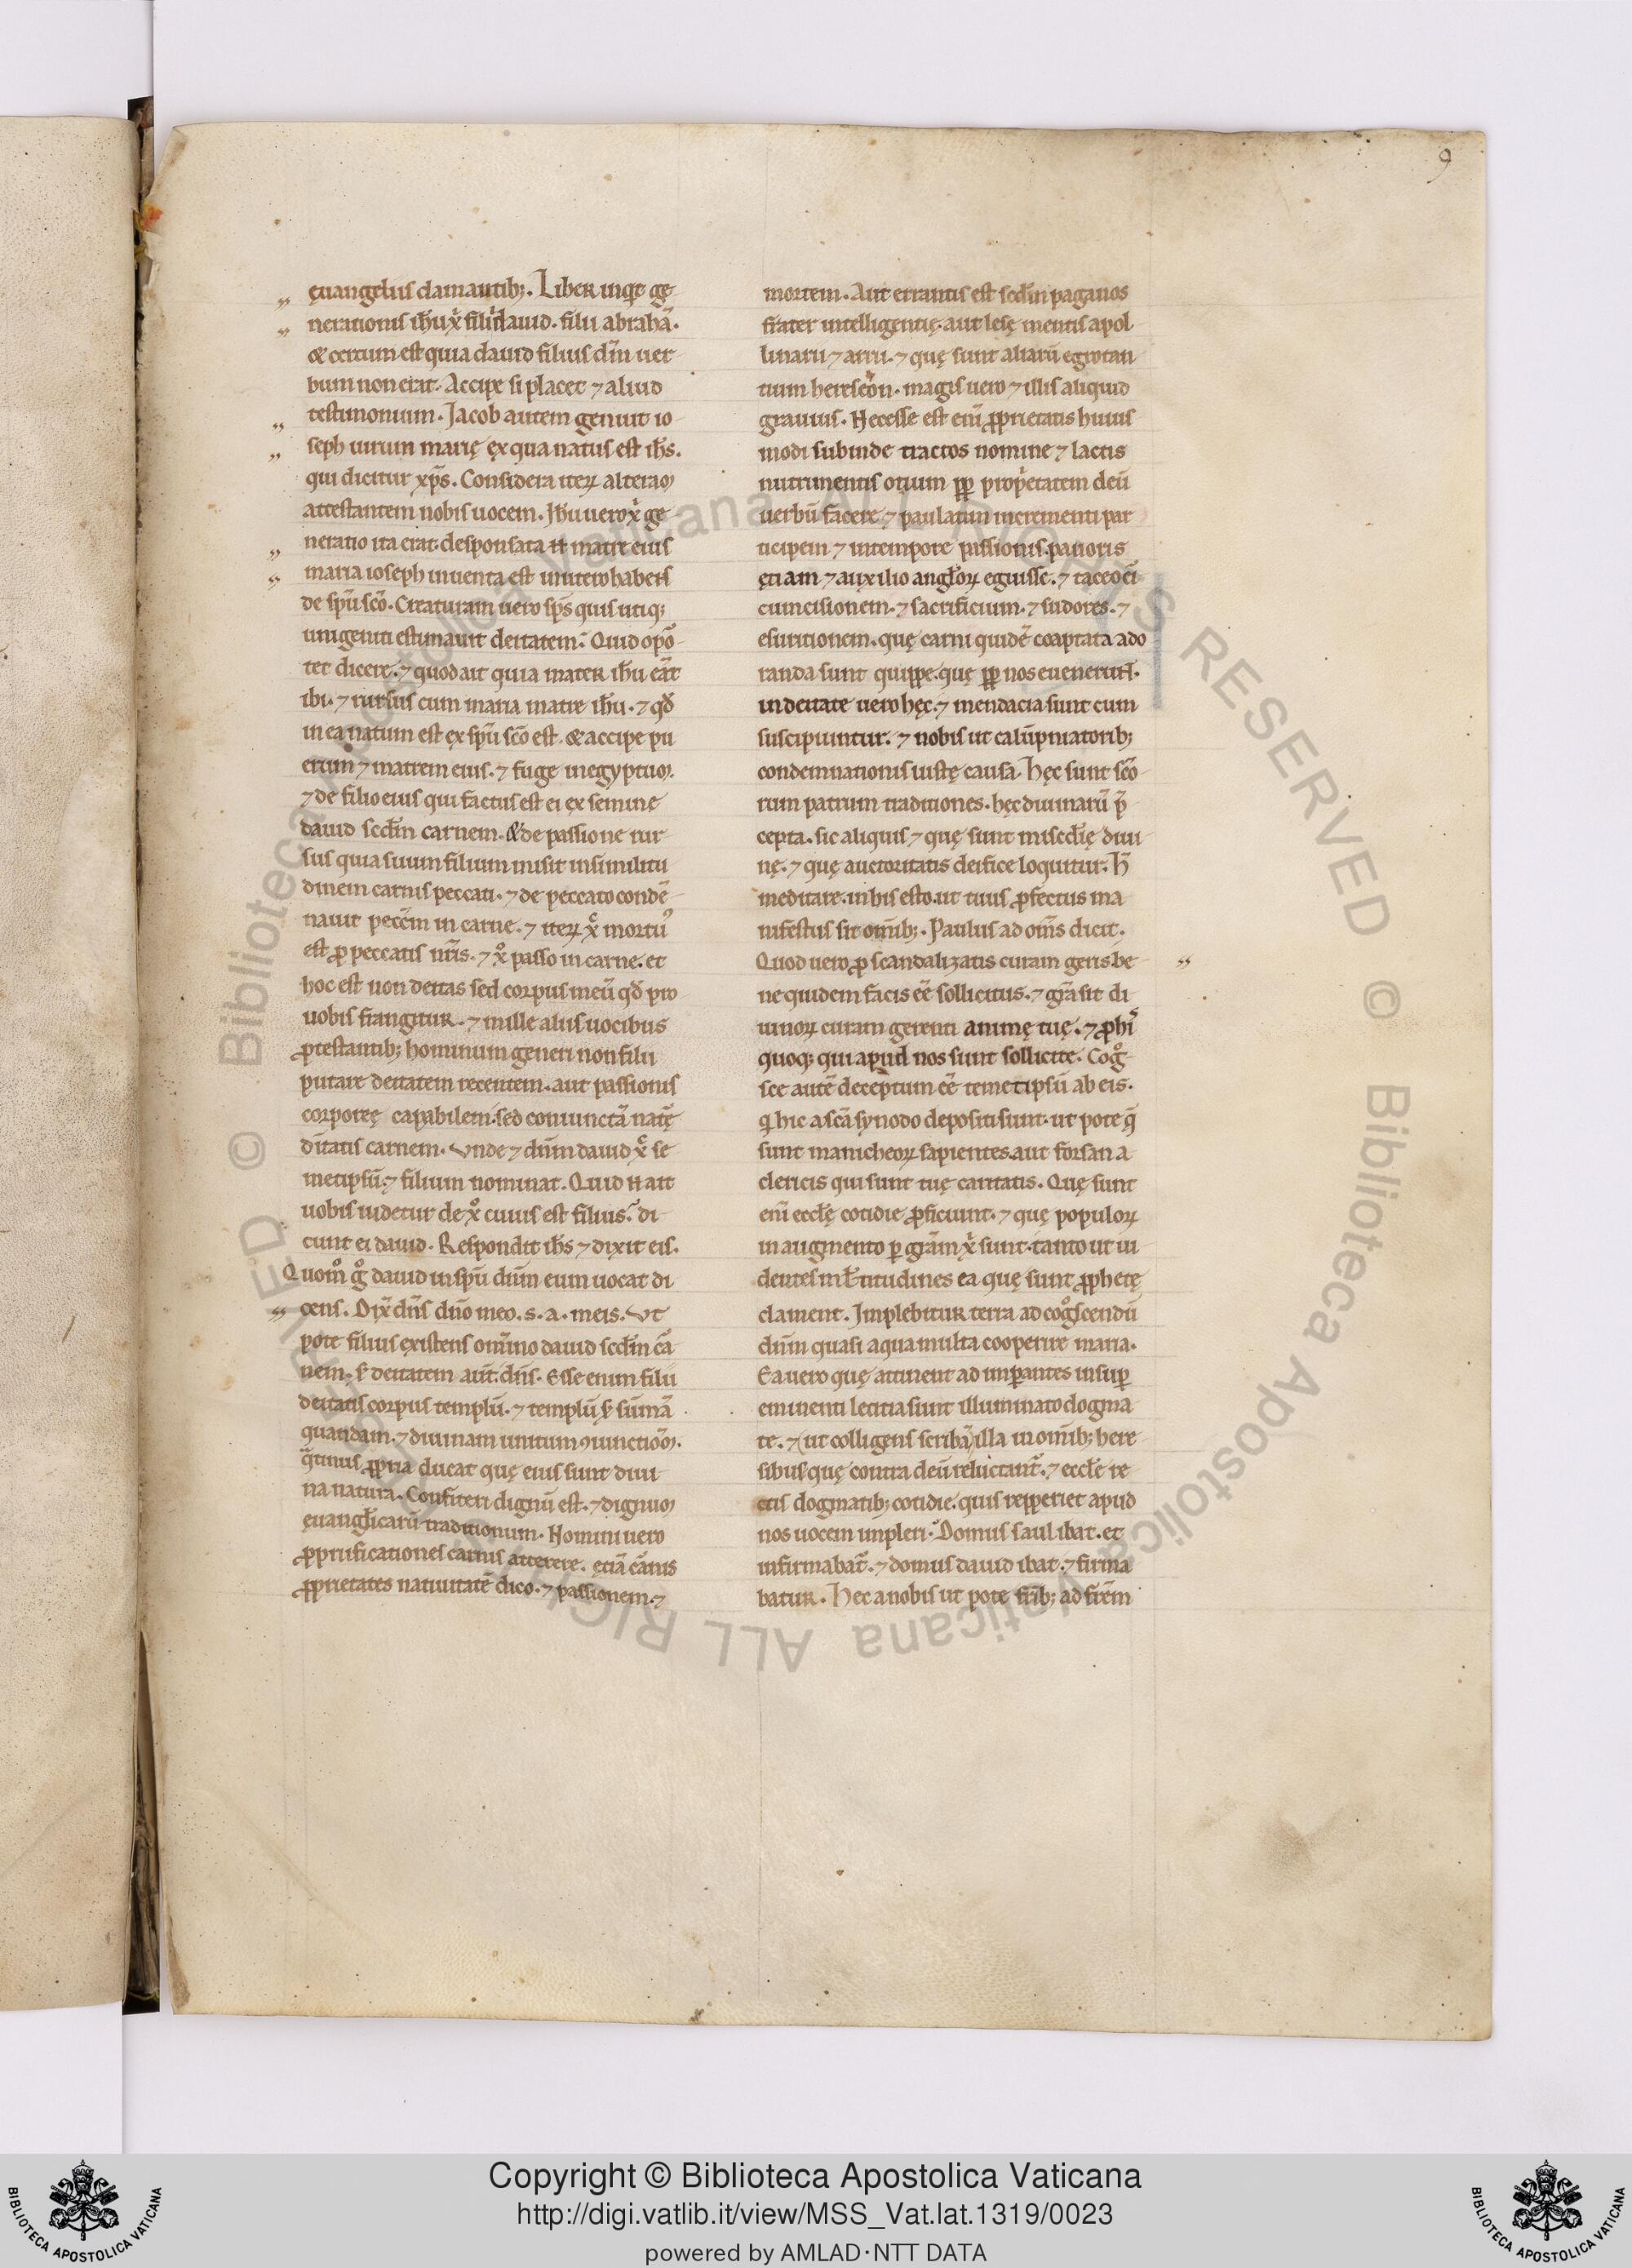 9
ęuangeliis clamantib; . Liber inqͥt gę
nerationis ih̄u xp̄i filii dauid . filii abrahā .
& certum est quia dauid filius dīm uer
bum non erat . Accipe si placet ⁊ aliud
testimonium . Jacob autem genuit io
seph uirum marię ex qua natus est ih̄s .
qui dicitur xp̄s . Considera iterꝝ alteram
attestantem nobis uocem . Jh̄u uero xp̄i ge
neratio ita erat . desponsata n̄ matre eius
maria ioseph inuenta est in utero habens
de sp̄u sc̄o . Creaturam uero sp̄s quis utiq;
unigeniti estimauit deitatem . Quid opor̄
tet dicere . ⁊ quod ait quia mater ih̄u erat
ibi . ⁊ rursus cum maria matre ih̄u . ⁊ qd̄
in ea natum est ex sp̄u sc̄o est . & accipe pu
erum ⁊ matrem eius . ⁊ fuge in egyptum .
⁊ de filio eius qui factus est ei ex semine
dauid scd̄m carnem . & de passione rur
sus quia suum filium misit in similitu
dinem carnis peccati . ⁊ de peccato condē
nauit pecc̄m in carne . ⁊ iterꝝ xp̄c mortuꝰ
est ꝓ peccatis nr̄is . ⁊ xp̄o passo in carne . et
hoc est non deitas sed corpus meū qd̄ pro
uobis frangitur . ⁊ mille aliis uocibus
ꝓtestantib; hominum generi non filii
putare deitatem recentem . aut passionis
corporeę capabilem . sed coniunctā natę
diuitatis carnem . Vnde ⁊ dn̄m dauid xp̄c se
metipsū . ⁊ filium nominat . Quid n̄ ait
uobis uidetur de xp̄o cuius est filius . di
cunt ei dauid . Respondit ih̄s ⁊ dixit eis .
Quom̊ g̊ dauid in sp̄u dn̄m eum uocat di
cens . Dix̄ dn̄s dn̄o meo . s . a . meis . Vt
pote filius existens om̄ino dauid scd̄m car̄
nem . s; deitatem aut̄ . dn̄s . Esse enim filii
deitatis corpus templū . ⁊ templū s; sum̄ā
quandam . ⁊ diuinam unitum ꝯiunctionem .
qͣtinus ꝓpria ducat quę eius sunt diui
na natura . Confiteri dignū est . ⁊ dignum
ęuangl̄icarū traditionum . Homini uero
ꝓprificationes carnis atterere . etiā car̄nis
ꝓprietates natiuitatē dico . ⁊ passionem . ⁊
mortem . Aut errantis est scd̄m paganos
frater intelligentię . aut lesę mentis apol
linarii ⁊ arrii . ⁊ quę sunt aliarū egrotan
tium hereseon . magis uero ⁊ illis aliquid
grauius . Necesse est eni ꝓprietatis huius
modi subinde tractos nomine ⁊ lactis
nutrimentis otium ꝓp̄ proprietatem deū
uerbū facere . ⁊ paulatim incrementi par
ticipem ⁊ in tempore passionis . pauoris
etiam ⁊ auxilio angl̄orꝝ eguisse . ⁊ taceo cir̄
cumcisionem . ⁊ sacrificium . ⁊ sudores . ⁊
esuritionem . quę carni quidē coaptata ado
randa sunt quippe . quę ꝓp̄ nos euenerunt .
in deitate uero hęc . ⁊ mendacia sunt cum
suscipiuntur . ⁊ nobis ut calūpniatorib;
condemnationis iustę causa . Hęc sunt sc̄o
rum patrum traditiones . hęc diuinarū p̄
cepta . sic aliquis ⁊ quę sunt miscd̄ię diui
nę . ⁊ quę auctoritatis deifice loquitur . H̄
meditare . in his esto . ut tuus ꝓfectus ma
nifestus sit om̄ib; . Paulus ad om̄s dicit .
Quod uero ꝓ scandalizatis curam geris . be
ne quidem facis eē sollicitus . ⁊ gr̄a sit di
uinorꝝ curam gerenti animę tuę . ⁊ ꝓ hiͥs
quoq; qui apud nos sunt sollicite . Cogͦ
sce autē deceptum eē temetipsū ab eis .
qͥ hic a sc̄a synodo depositi sunt . ut pote qͥ
sunt manicheorꝝ sapientes . aut forsan a
clericis qui sunt tuę caritatis . Quę sunt
eni eccl̄ę cotidie ꝓficiunt . ⁊ quę populorꝝ
in augmento ꝑ gr̄am xp̄i sunt . tanto ut ui
dentes ml̄titudines ea quę sunt ꝓphetę
clament . Implebitur terra ad cogͦscendū
dn̄m quasi aqua multa cooperire maria .
Ea uero quę attinent ad imꝑantes in suꝑ
eminenti letitia sunt illuminato dogma
te . ⁊ ut colligens scribā illa in om̄ib; here
sibus quę contra deū reluctant̄ . ⁊ eccl̄e re
ctis dogmatib; cotidie . quis repperiet apud
nos uocem impleri . Domus saul ibat . et
infirmabat̄ . ⁊ domus dauid ibat . ⁊ firma
batur . Hec a nobis ut pote fr̄ib; ad fr̄em
Copyright © Biblioteca Apostolica Vaticana
http://digi.vatlib.it/view/MSS_Vat.lat.1319/0023
powered by AMLAD·NTT DATA
BIBLIOTECA APOSTOLICA VATICANA
BIBLIOTECA APOSTOLICA VATICANA
© Biblioteca Apostolica Vaticana ALL RIGHTS RESERVED © Biblioteca Apostolica Vaticana ALL RIGHTS RESERVED